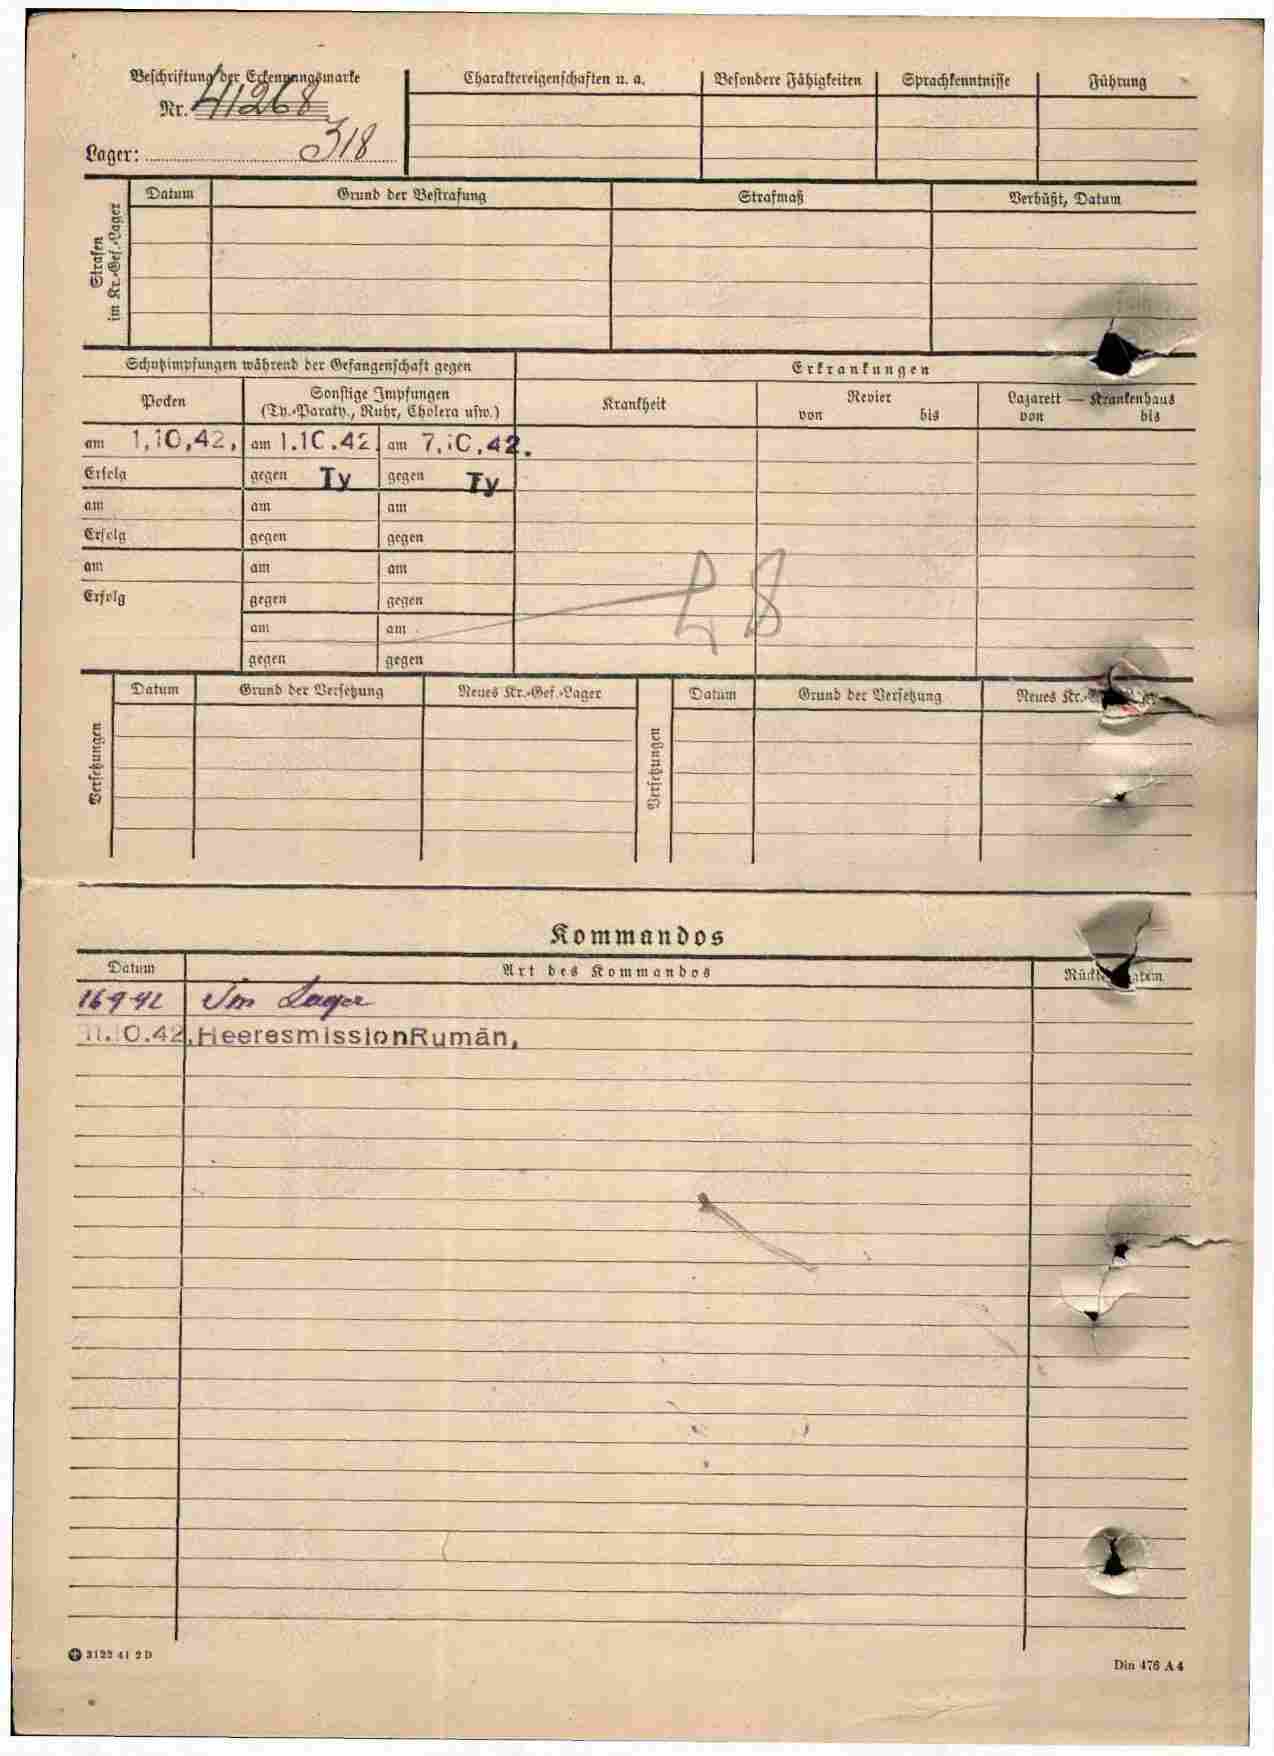 Beschriftung der Erkennungsmarke
Nr. 41268
Lager: 318
Charaktereigenschaften u. a.
Besondere Fähigkeiten
Sprachkenntnisse
Führung
Strafen im Kr.-Gef.-Lager
Datum
Grund der Bestrafung
Strafmaß
Verbüßt, Datum
Schutzimpfungen während der Gefangenschaft gegen
Erkrankungen
Pocken
Sonstige Impfungen
(Ty.-Paraty., Ruhr, Cholera usw.)
Krankheit
Revier
von bis
Lazarett — Krankenhaus
von bis
am 1.10.42. am 1.10.42. am 7.10.42.
Erfolg gegen Ty gegen Ty
am am am
Erfolg gegen gegen
am am am
Erfolg gegen gegen
am am
gegen gegen
Versetzungen
Datum Grund der Versetzung Neues Kr.-Gef.-Lager
Versetzungen
Datum Grund der Versetzung Neues
Kommandos
Datum Art des Kommandos
16 9 42 Im Lager
.42. HeeresmissionRumän.
3122 41 2 D
Din 476 A 4